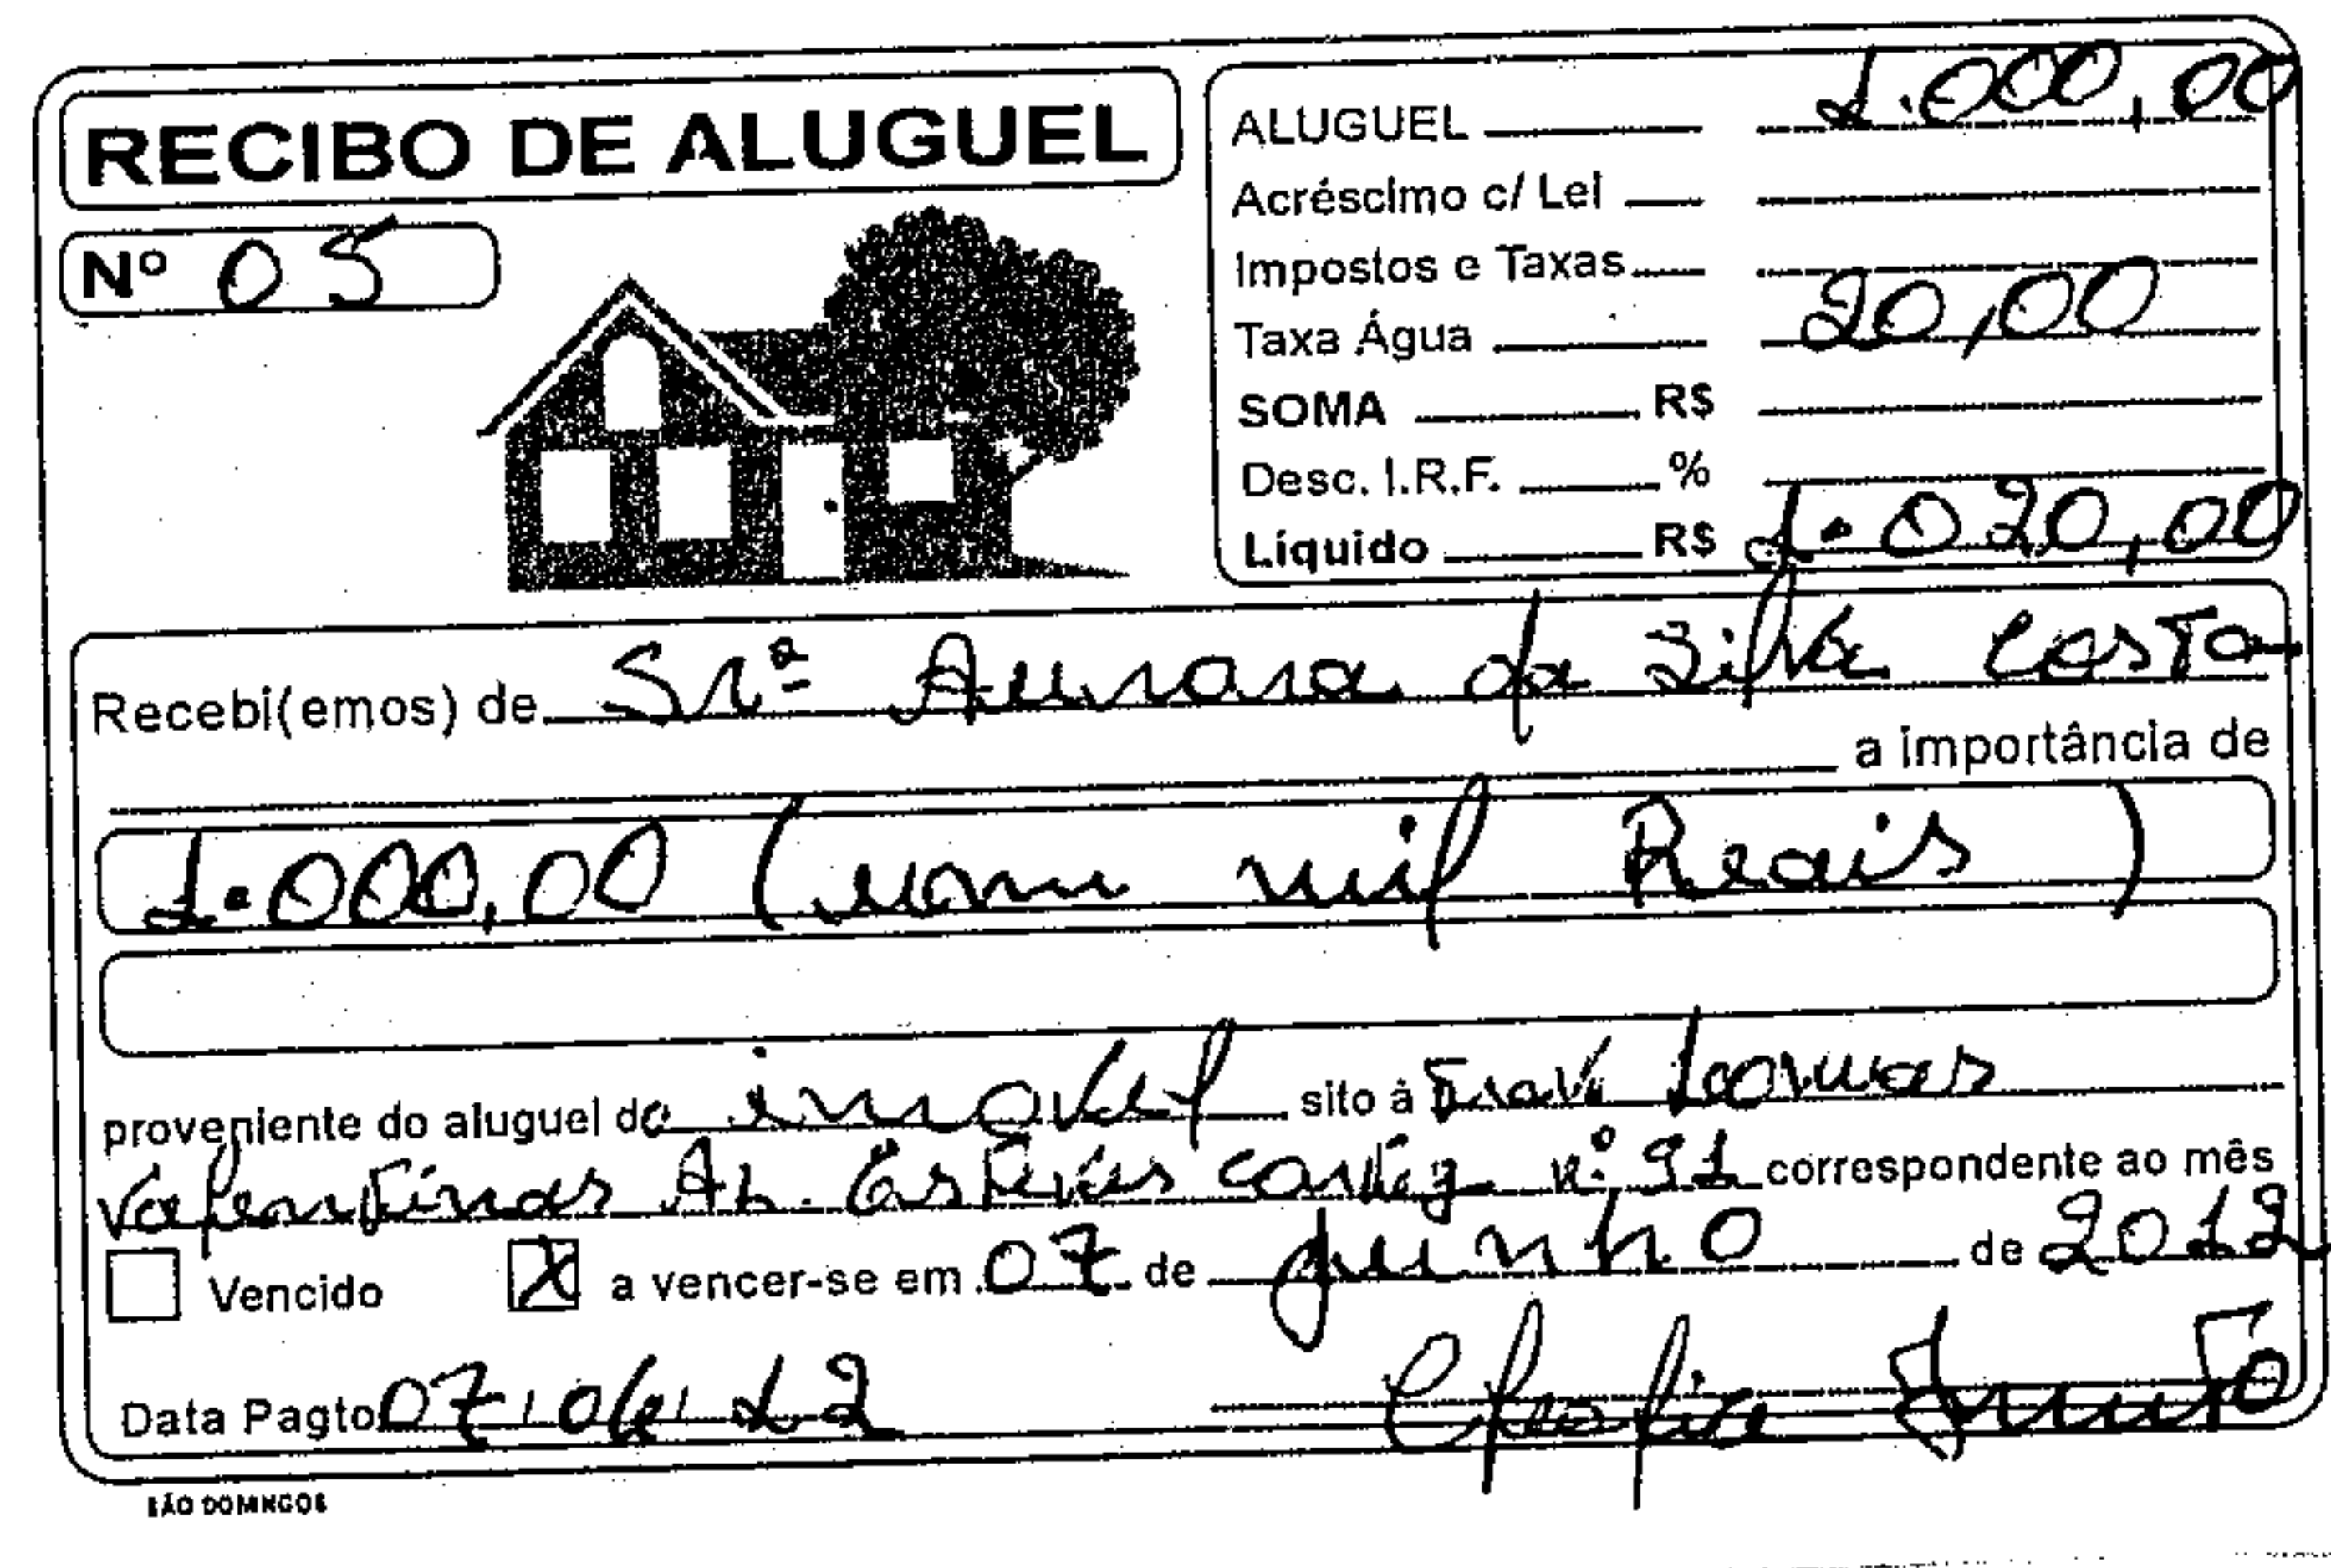 RECIBO DE ALUGUEL
Nº 05
ALUGUEL 1.000,00
Acréscimo c/ Lei
Impostos e Taxas
Taxa Água 20,00
SOMA R$
Desc. I.R.F. %
Líquido R$ 1.020,00
Recebi(emos) de Srª Aurora da Silva Costa
a importância de
1.000,00 (um mil Reais)
proveniente do aluguel do imovel sito à Trav.
Valentinas An. nº 91 correspondente ao mês
Vencido X a vencer-se em 07 de junho de 2012
Data Pagto 07 06 12
SÃO DOMINGOS